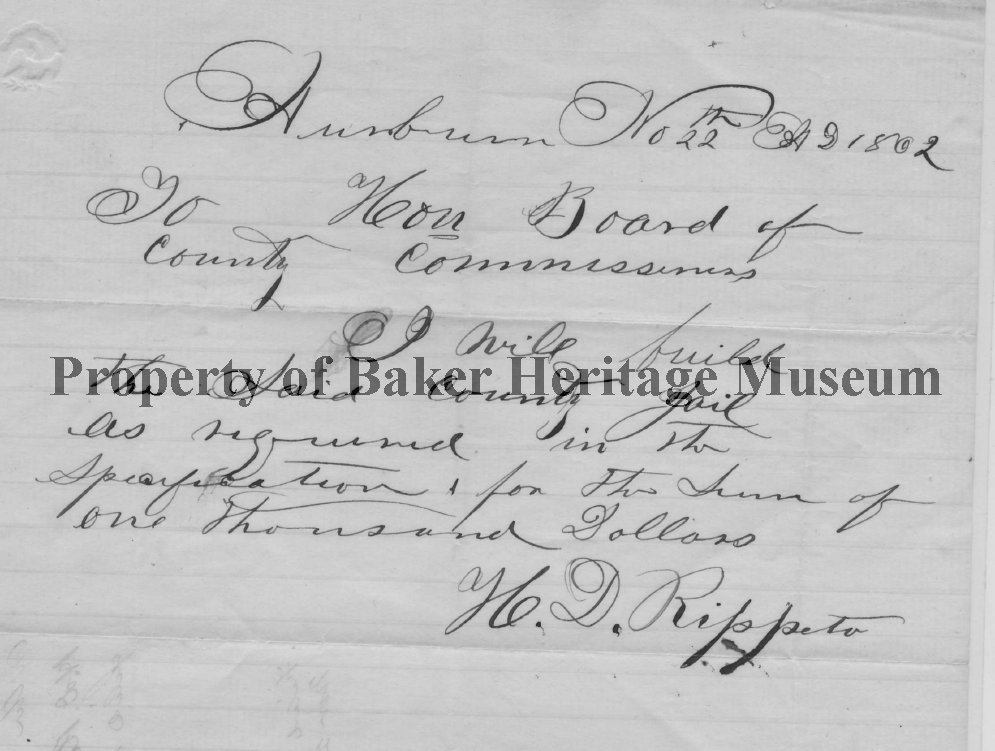 Auburn No 22th AD 1862
To Hon Board of
County Commissiners
I will build
Property of Baker Heritage Museum
the Said County Jail
as required in the
specification, for the Sum of
one Thousand Dollars
H. D. Rippeto